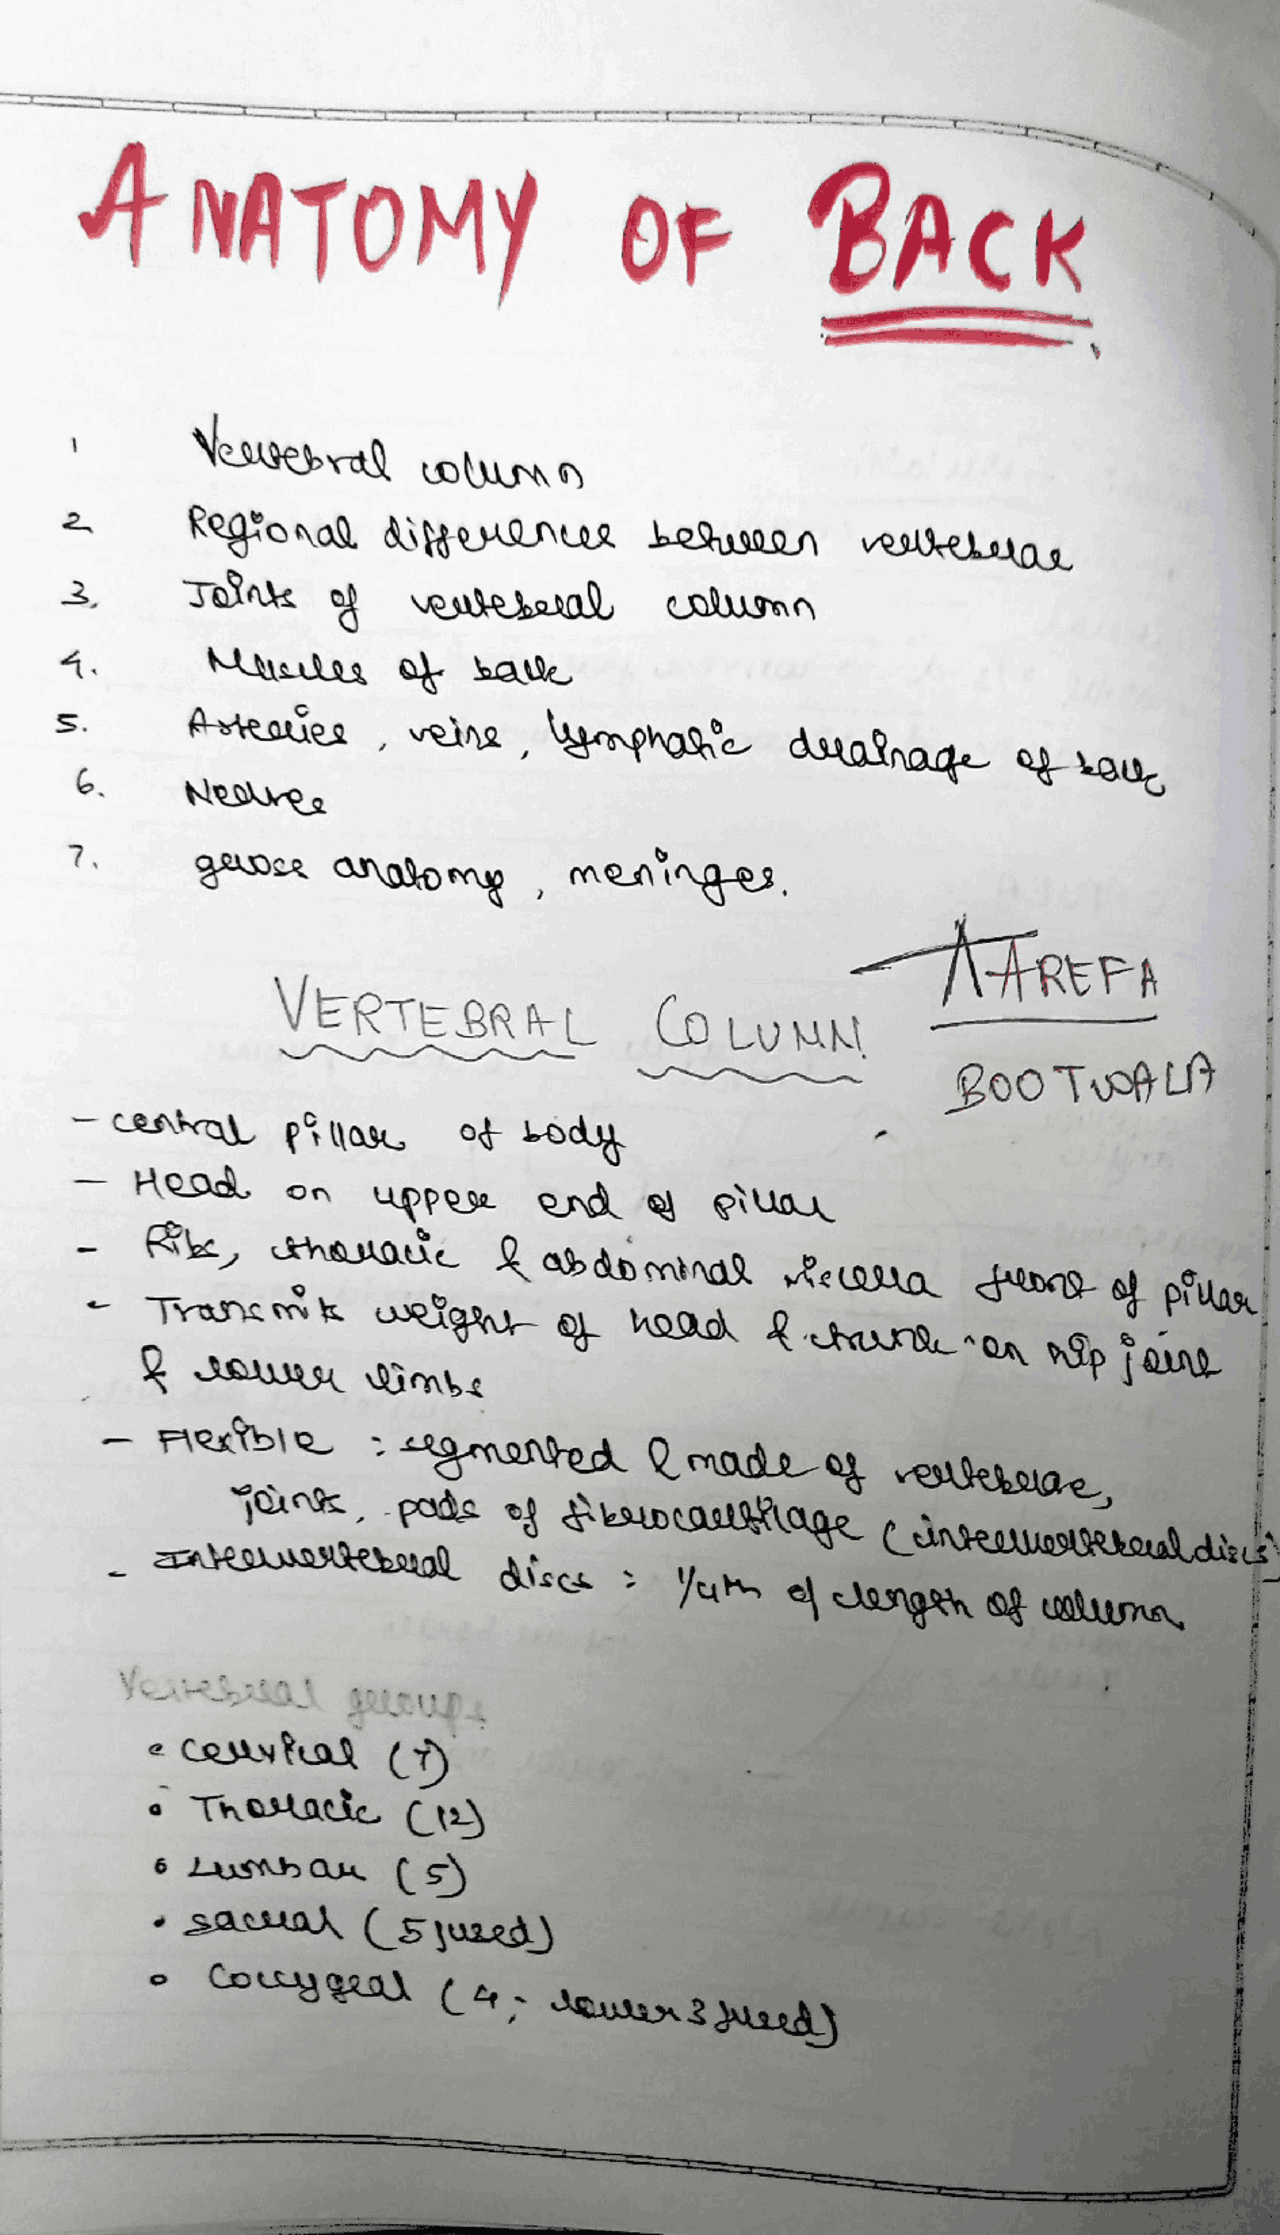 ANATOMY OF BACK
1 Vertebral column
2 Regional differences between vertebrae
3. Joints of vertebral column
4. Muscles of back
5. Arteries, veins, lymphatic drainage of back
6. Nerves
7. gross anatomy, meninges.
AAREFA
VERTEBRAL COLUMN
BOOTWALA
- central pillar of body
- Head on upper end of pillar
- Ribs, thoracic & abdominal viscera front of pillar
- Transmits weight of head & trunk on hip joint
& lower limbs
- Flexible : segmented & made of vertebrae,
joints, pads of fibrocartilage (intervertebral discs)
- Intervertebral discs : 1/4th of length of column
Vertebral groups
• cervical (7)
• Thoracic (12)
• Lumbar (5)
• sacral (5 fused)
• Coccygeal (4; lower 3 fused)